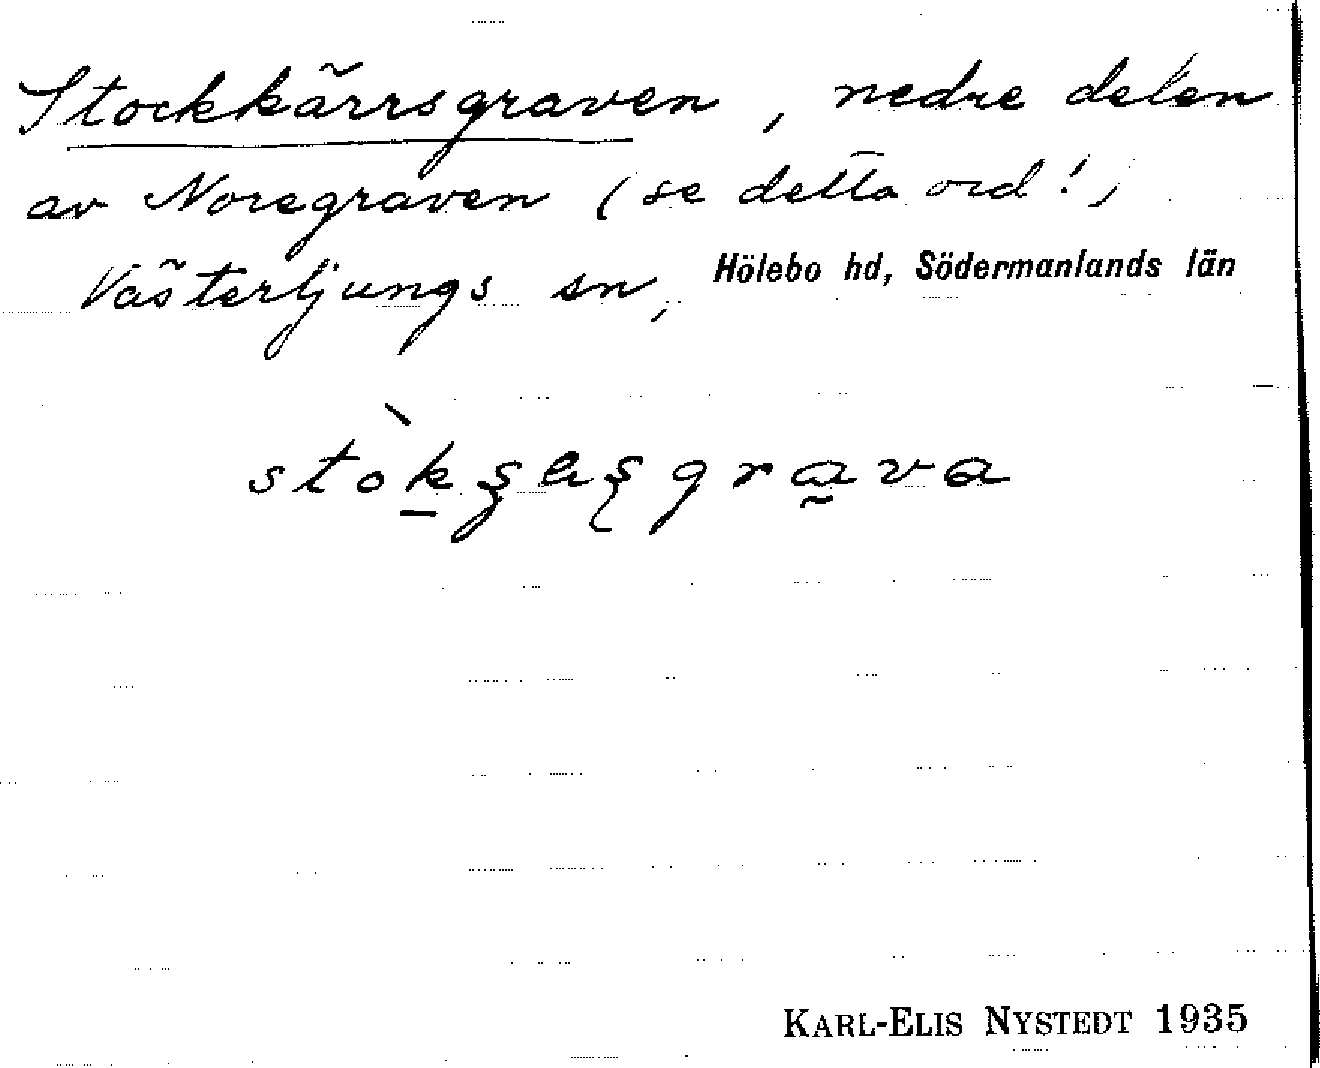 Stockkärrsgraven, nedre delen
av Noregraven (se detta ord!)
Västerljungs sn, Hölebo hd, Södermanlands län
stòkʂäʂgrava
KARL-ELIS NYSTEDT 1935